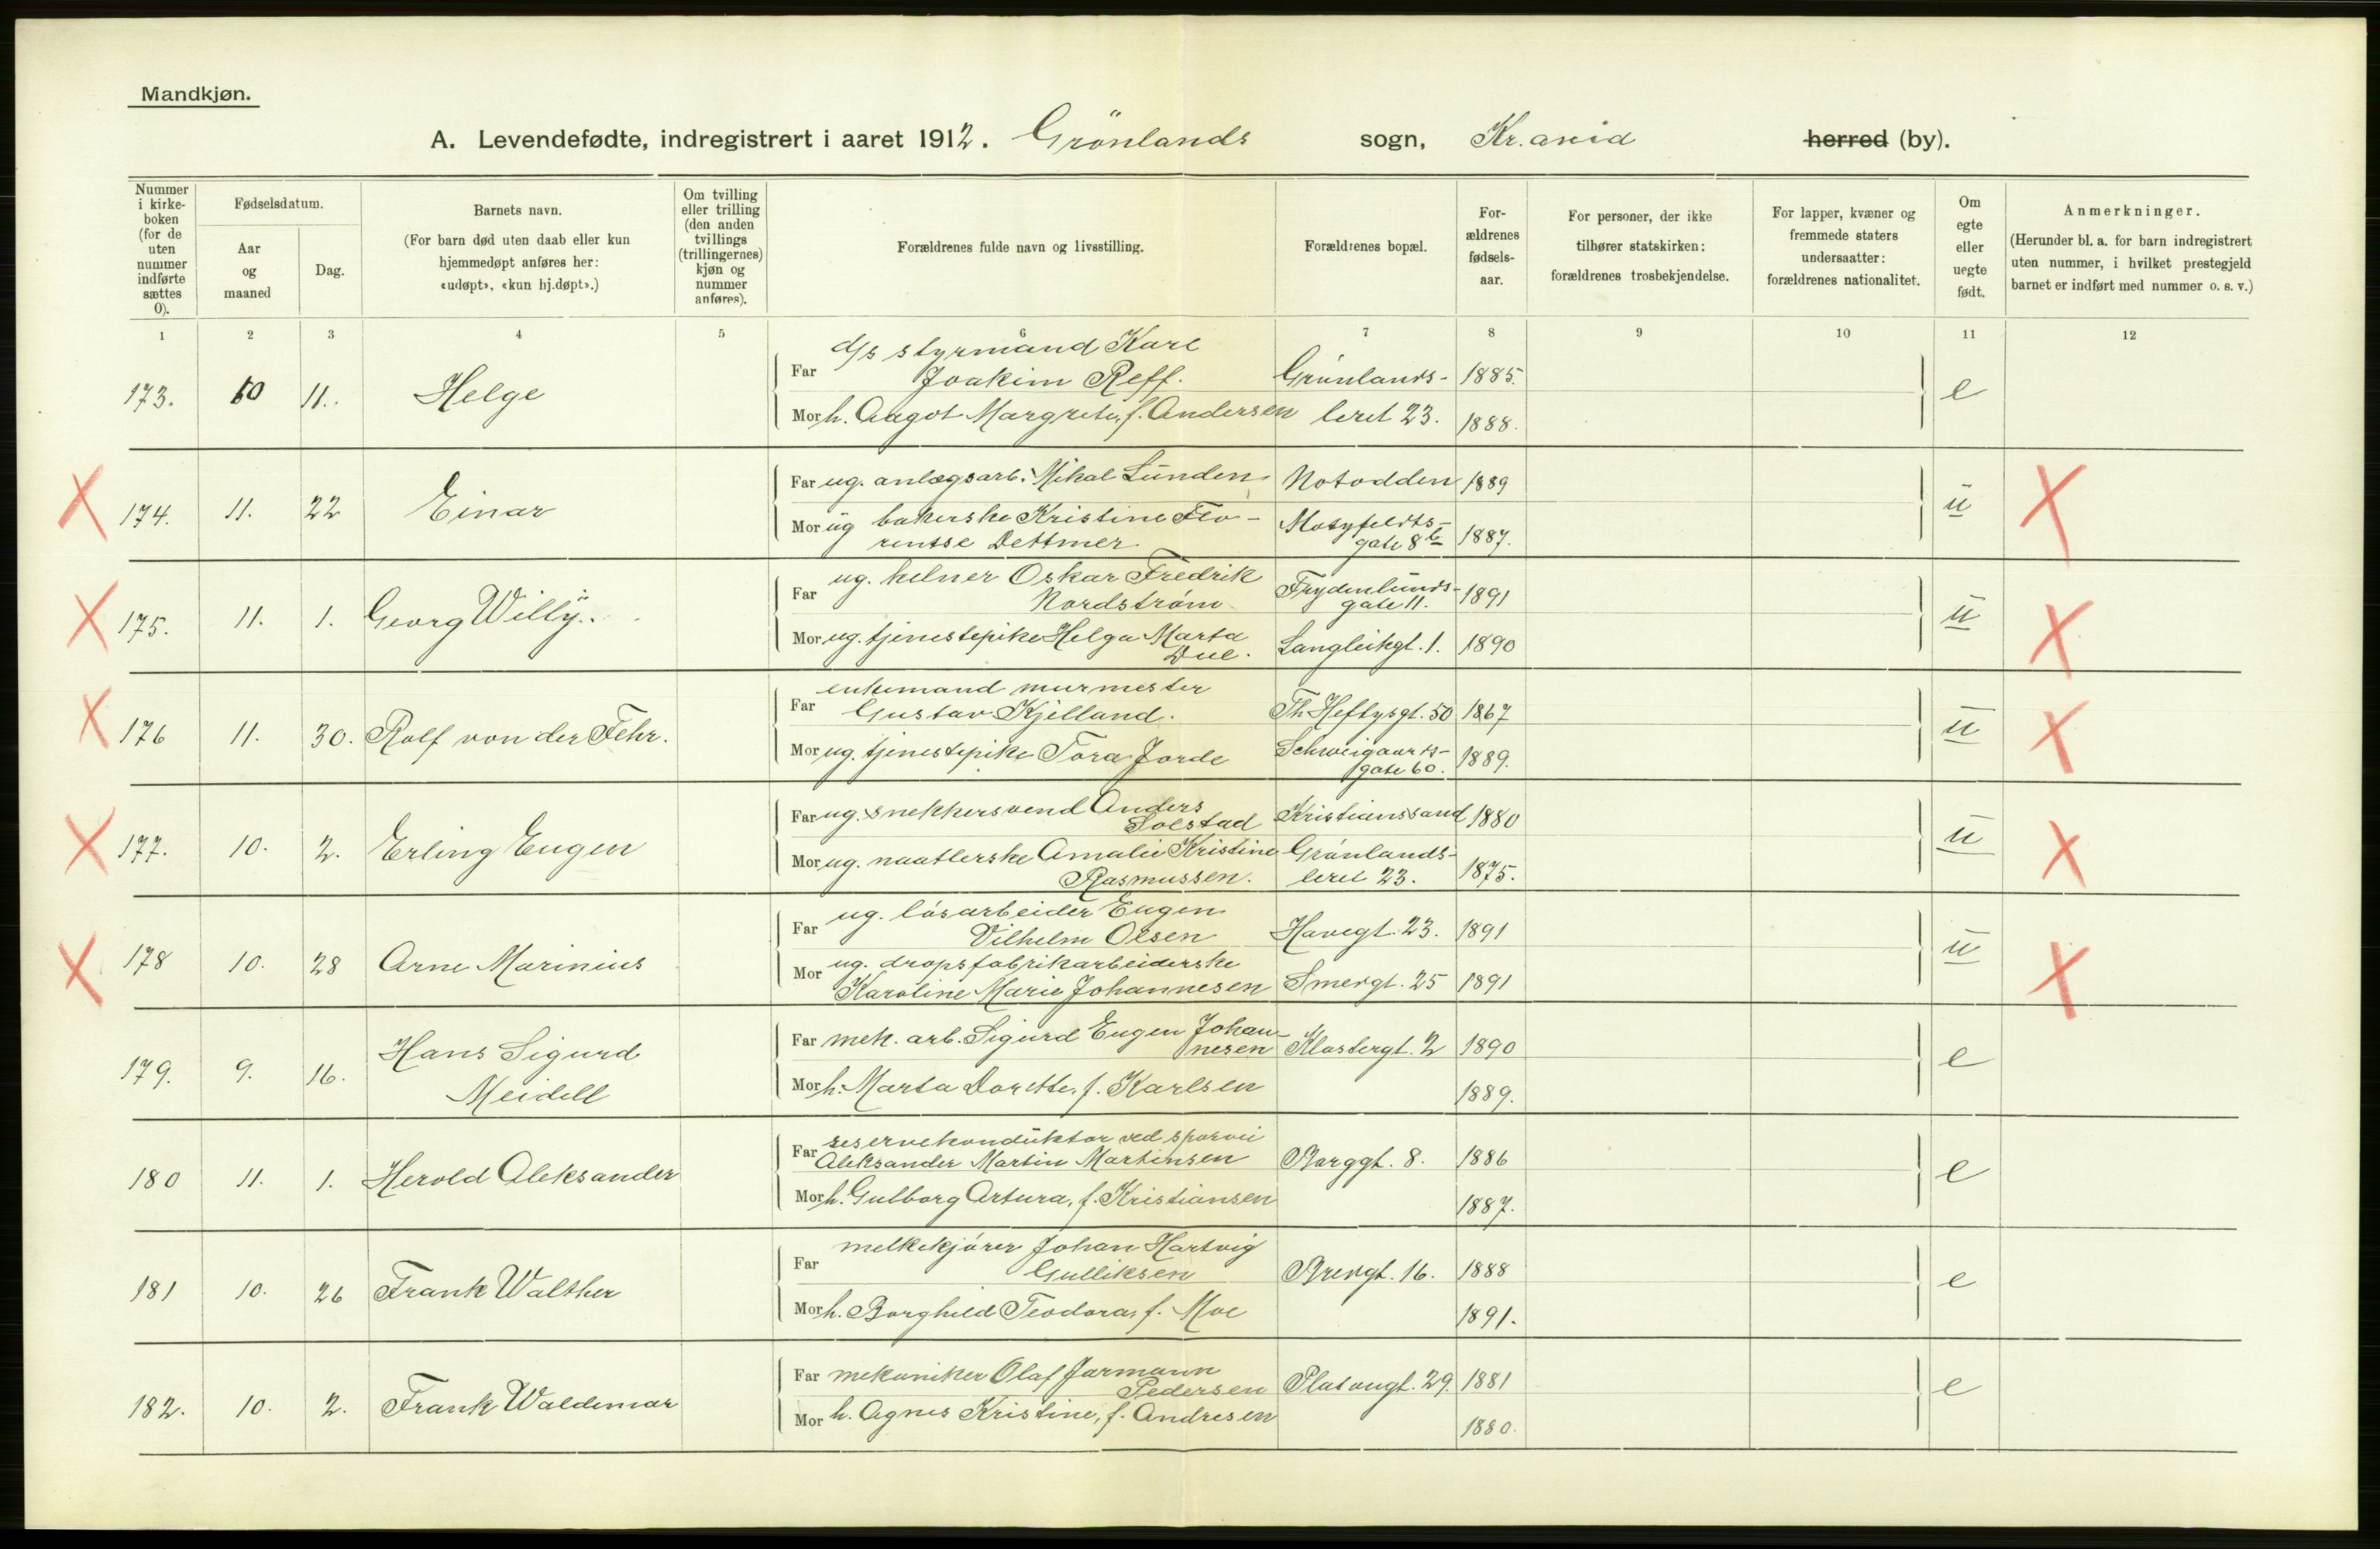 Mandkjøn.
A. Levendefødte, indregistrert i aaret 1912. Grönlands sogn, Kr.ania herred (by).
Nummer i kirke-boken (for de uten nummer indførte sættes 0).
Fødselsdatum.
Aar og maaned
Dag.
Barnets navn.
(For barn død uten daab eller kun hjemmedøpt anføres her: «udøpt», «kun hj.døpt».)
Om tvilling eller trilling (den anden tvillings (trillingernes) kjøn og nummer anføres).
Forældrenes fulde navn og livsstilling.
Forældrenes bopæl.
For-ældrenes fødsels-aar.
For personer, der ikke tilhører statskirken: forældrenes trosbekjendelse.
For lapper, kvæner og fremmede staters undersaatter: forældrenes nationalitet.
Om egte eller uegte født.
Anmerkninger.
(Herunder bl. a. for barn indregistrert uten nummer, i hvilket prestegjeld barnet er indført med nummer o. s. v.)
1 2 3 4 5 6 7 8 9 10 11 12
173. 10 11. Helge
Far d/s styrmand Karl
Joakim Reff. Grünlands- 1885.
Mor h. Aagot Margrete, f. Andersen leret 23. 1888.
e
174. 11. 22 Einar
Far ug. anlægsarb. Mikal Lunden Notodden 1889
Mor ug bakerske Kristine Flo-
rentse Dettmer Mosyfeldts-
gate 8b 1887.
ü
175. 11. 1. Georg Willy.
Far ug. kelner Oskar Fredrik
Nordström Frydenlunds-
gate 11. 1891
Mor ug. tjenestepike Helga Marta
Due. Langleikgt. 1. 1890
ü
176 11. 30. Rolf von der Fehr.
Far enkemand murmester
Gustav Kjelland. Th. Heftysgt. 50 1867
Mor ug. tjenestepike Tora Jorde Schweigaards-
gate 60. 1889.
ü
177. 10. 2. Erling Eugen
Far ug. snekkersvend Anders
Solstad Kristianssand 1880
Mor ug. naatlerske Amalie Kristine
Rasmussen. Grönlands-
leret 23. 1875.
ü
178 10. 28 Arne Marinius
Far ug. lösarbeider Eugen
Vilhelm Olsen Havegt. 23. 1891
Mor ug. dropsfabrikarbeiderske
Karoline Marie Johannesen Smedgt. 25 1891
ü
179. 9. 16. Hans Sigurd
Meidell
Far mek. arb. Sigurd Eugen Johan-
nesen Klostergt. 2 1890
Mor h. Marta Dorette, f. Karlsen 1889.
e
180 11. 1. Herold Aleksander
Far reservekonduktør ved sporvei
Aleksander Martin Martinsen Borggt. 8. 1886
Mor h. Gulborg Artura, f. Kristiansen 1887.
e
181 10. 26 Frank Walther
Far melkekjörer Johan Hartvig
Gulliksen Bredgt. 16. 1888
Mor h. Borghild Teodora, f. Moe 1891.
e
182. 10. 2. Frank Waldemar
Far mekaniker Olaf Jarmann
Pedersen Platougt. 29. 1881
Mor h. Agnes Kristine, f. Andresen 1880.
e